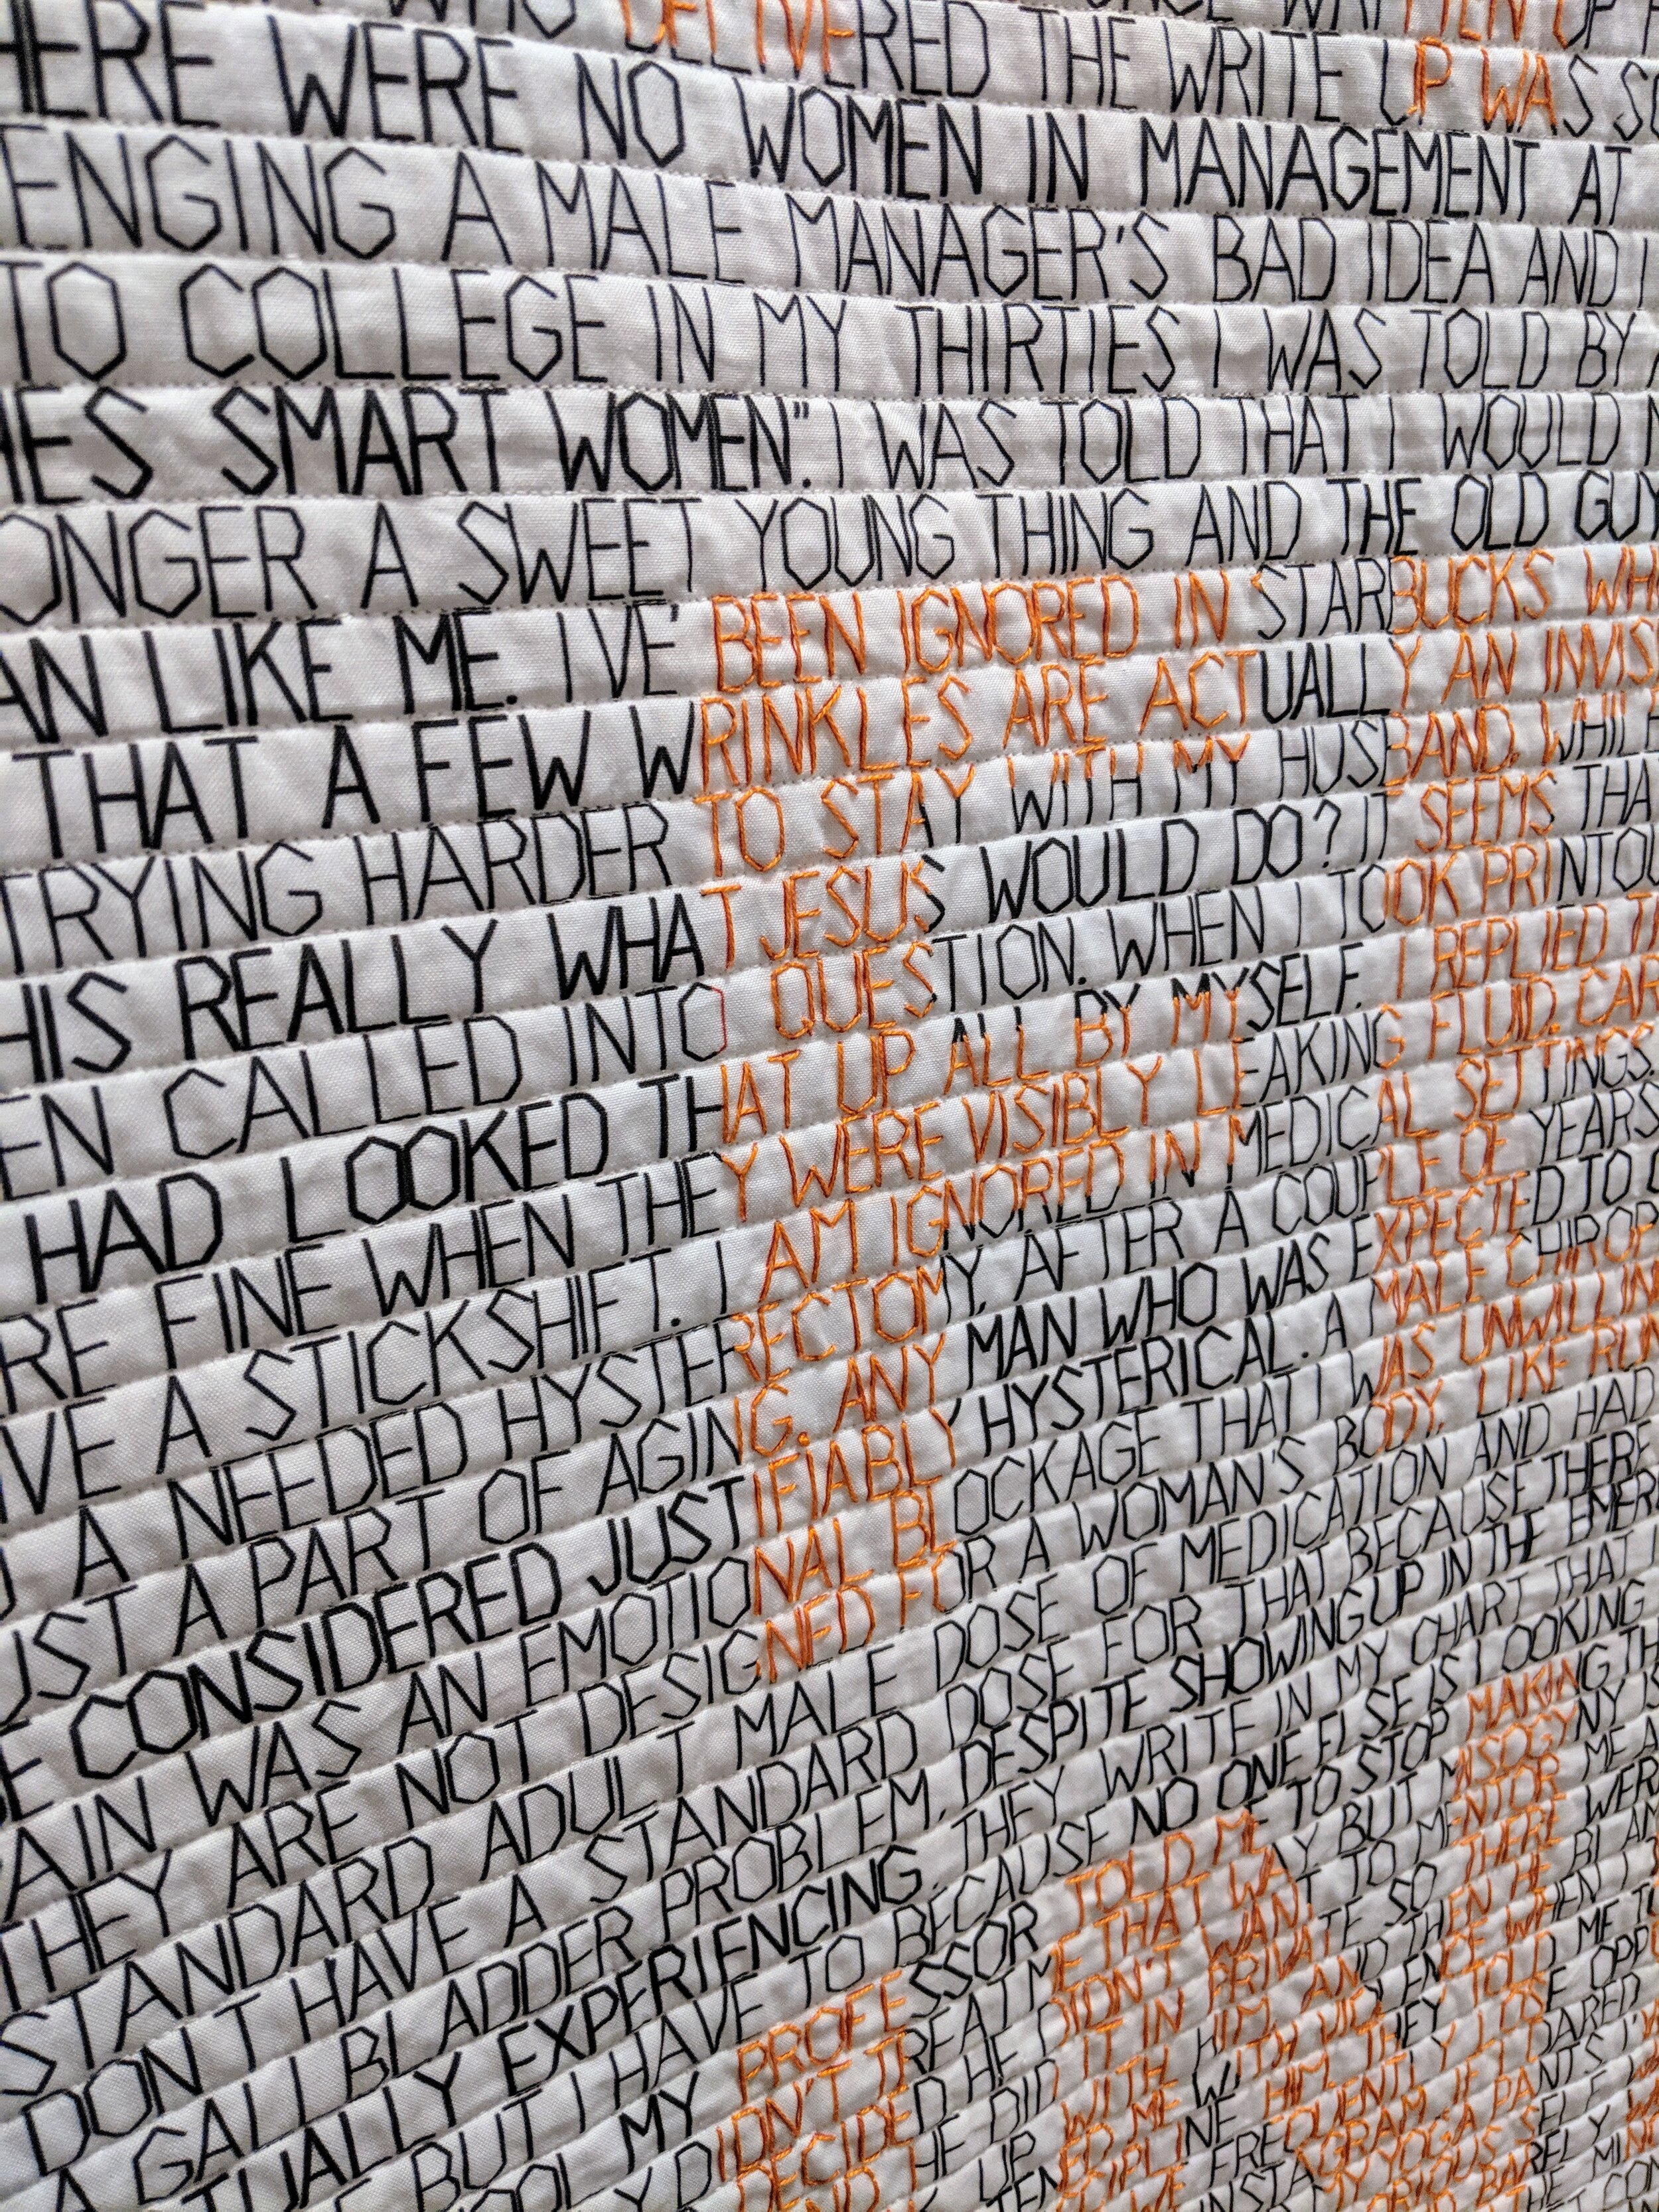 DELIVERED THE WRITE UP WAS
HERE WERE NO WOMEN IN MANAGEMENT AT
ENGING A MALE MANAGER'S BAD IDEA AND I
TO COLLEGE IN MY THIRTIES I WAS TOLD BY
HES SMART WOMEN". I WAS TOLD THAT I WOULD
ONGER A SWEET YOUNG THING AND THE OLD GUY
AN LIKE ME. IVE' BEEN IGNORED IN STARBUCKS WH
THAT A FEW WRINKLES ARE ACTUALLY AN INVIS
TRYING HARDER TO STAY WITH MY HUSBAND. WHILE
HIS REALLY WHAT JESUS WOULD DO? IT SEEMS THA
EN CALLED INTO QUESTION. WHEN I TOOK PRINTOU
HAD LOOKED THAT UP ALL BY MYSELF. I REPLIED
RE FINE WHEN THEY WERE VISIBLY LEAKING FLUID. CAR
VE A STICKSHIFT. I AM IGNORED IN MEDICAL SETTINGS.
A NEEDED HYSTERECTOMY, AFTER A COUPLE OF YEARS
UST A PART OF AGING. ANY MAN WHO WAS EXPECTED TO
E CONSIDERED JUSTIFIABLY HYSTERICAL. A MALE CHIROP
AIN WAS AN EMOTIONAL BLOCKAGE THAT I WAS UNWILLIN
THEY ARE NOT DESIGNED FOR A WOMAN'S BODY, LIKE RUN
STANDARD ADULT MALE DOSE OF MEDICATION AND HAD
DON'T HAVE A STANDARD DOSE FOR THAT BECAUSE THERE
A GALLBLADDER PROBLEM, DESPITE SHOWING UP IN THE EMER
TUALLY EXPERIENCING. THEY WRITE IN MY CHART THAT I
BUT I HAVE TO BECAUSE NO ONE ELSE IS LOOKING
OOL MY PROFESSOR TOLD ME TO STOP MAKING TH
Y DIDN'T TREAT ME THAT WAY BUT MISOGYNY IS
DECIDED HE DIDN'T WANT TO MENTOR ME A
HE DID IT IN PRIVATE SO THERE WER